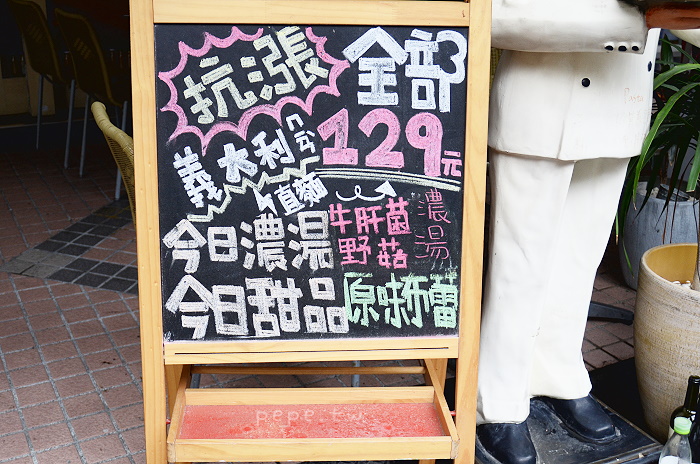 抗漲
全部
129元
義大利
直麵
今日濃湯
牛肝菌
野菇
濃湯
今日甜品
原味布蕾
pepe.tw